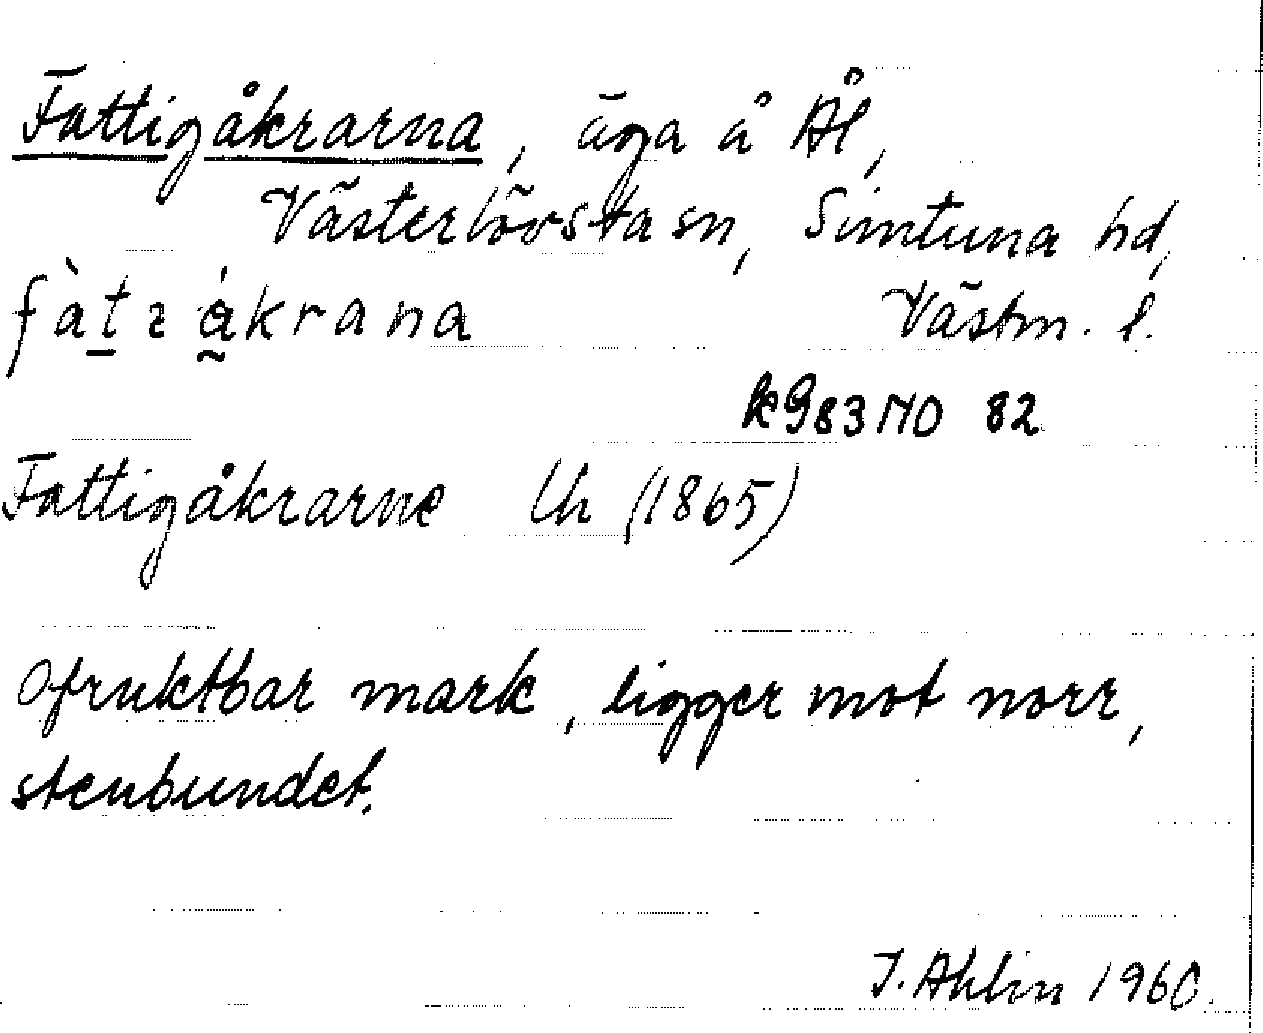 Fattigåkrarna, äga å Ål,
Västerlövsta sn, Simtuna hd,
Västm. l.
k983 NO 82
Fattigåkrarne Lh (1865)
Ofruktbar mark, ligger mot norr,
stenbundet.
J. Ahlin 1960.